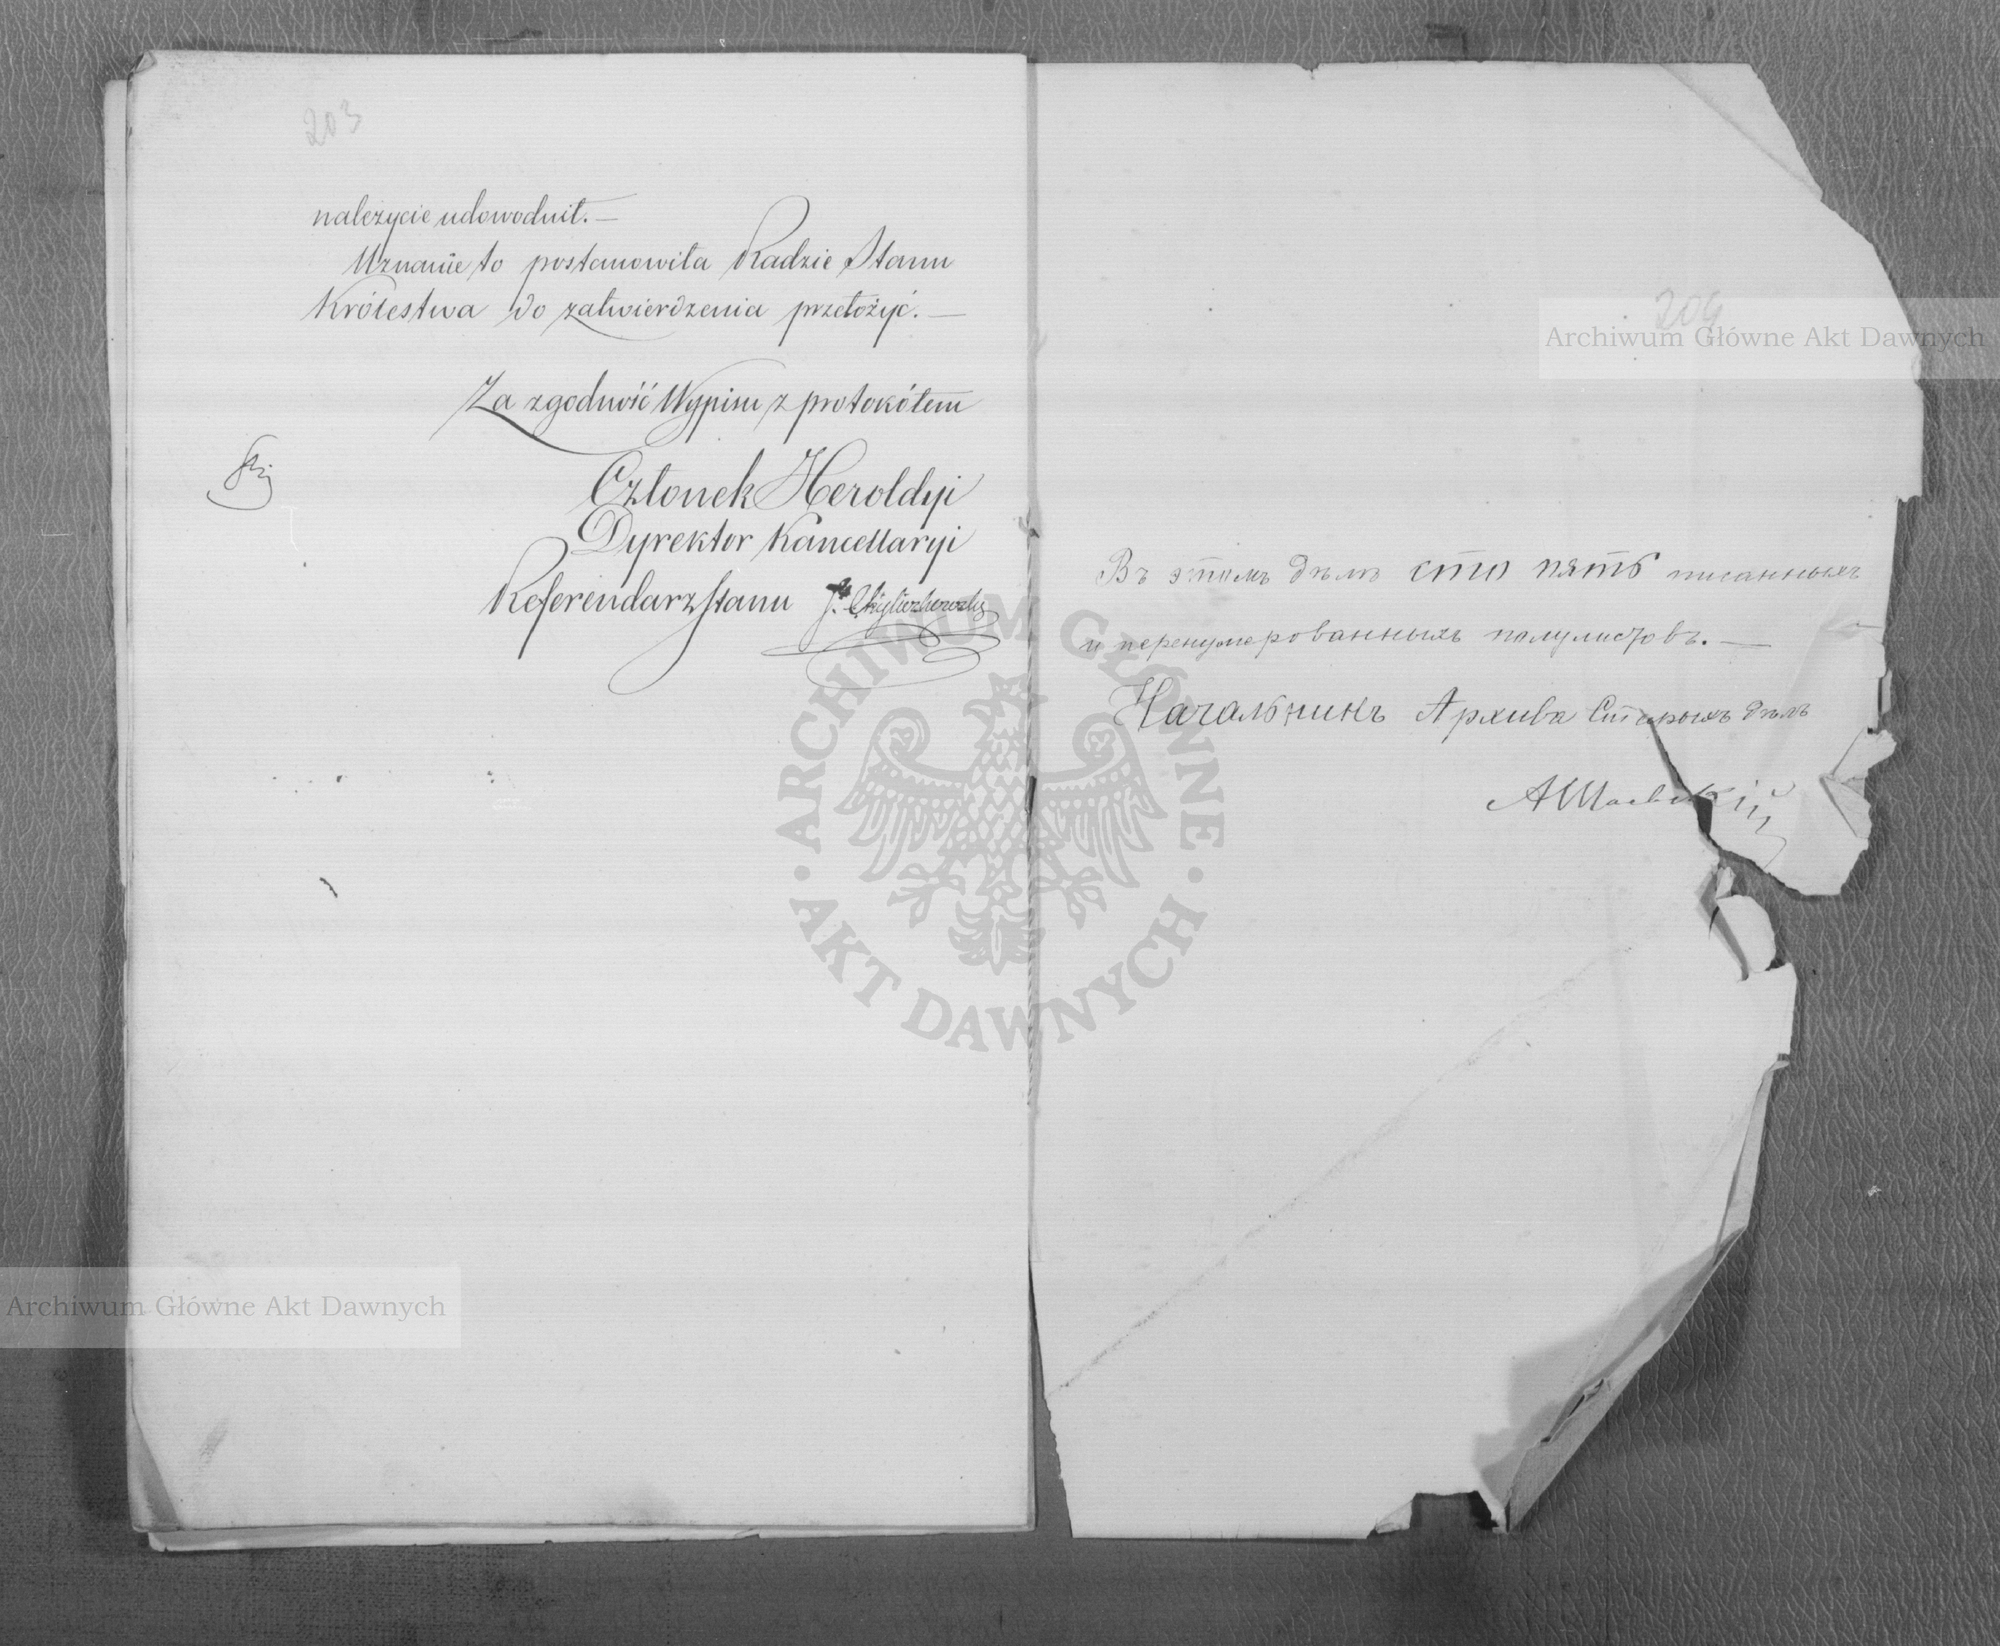 203
należycie udowodnił. —
Uznanie to postanowiła Radzie Stanu
Królestwa do zatwierdzenia przełożyć. —
Za zgodność Wypisu z protokółem
Członek Heroldyi
Dyrektor Kancellaryi
Referendarz Stanu
204
Въ этомъ дѣлѣ сто пять писанныхъ
и перенумерованныхъ полулистовъ. —
Начальникъ Архива Старыхъ дѣлъ
Archiwum Główne Akt Dawnych
Archiwum Główne Akt Dawnych
ARCHIWUM GŁÓWNE
AKT DAWNYCH